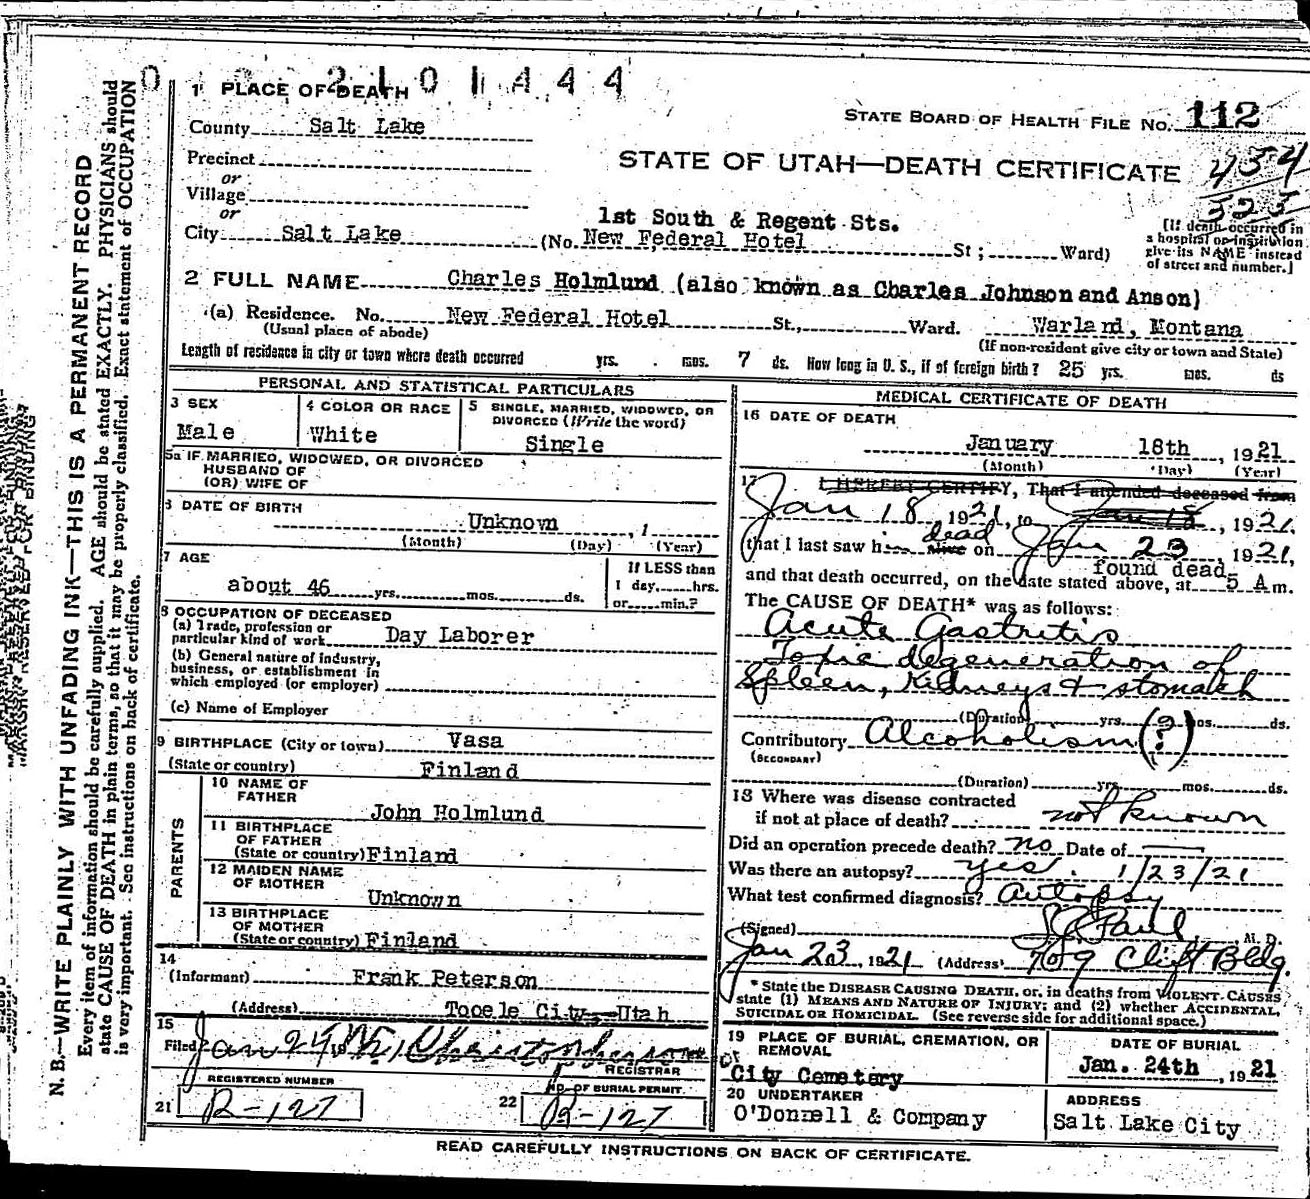 2101444
1 PLACE OF DEATH
STATE BOARD OF HEALTH FILE NO. 112
County Salt Lake
STATE OF UTAH—DEATH CERTIFICATE
434
Precinct
or
Village
or
1st South & Regent Sts.
City Salt Lake (No. New Federal Hotel St; Ward)
(If death occurred in a hospital or institution give its NAME instead of street and number.)
2 FULL NAME Charles Holmlund (also known as Charles Johnson and Anson)
(a) Residence. No. New Federal Hotel St., Ward. Warland, Montana
(Usual place of abode) (If non-resident give city or town and State)
Length of residence in city or town where death occurred yrs. mos. 7 ds. How long in U. S., if of foreign birth? 25 yrs. mos. ds
PERSONAL AND STATISTICAL PARTICULARS
3 SEX
Male
4 COLOR OR RACE
White
5 SINGLE, MARRIED, WIDOWED, OR DIVORCED (Write the word)
Single
5a IF MARRIED, WIDOWED, OR DIVORCED
HUSBAND OF
(OR) WIFE OF
6 DATE OF BIRTH
Unknown , 1
(Month) (Day) (Year)
7 AGE
about 46 yrs. mos. ds.
If LESS than
1 day, hrs.
or min.?
8 OCCUPATION OF DECEASED
(a) Trade, profession or
particular kind of work Day Laborer
(b) General nature of industry,
business, or establishment in
which employed (or employer)
(c) Name of Employer
9 BIRTHPLACE (City or town) Vasa
(State or country) Finland
PARENTS
10 NAME OF
FATHER
John Holmlund
11 BIRTHPLACE
OF FATHER
(State or country) Finland
12 MAIDEN NAME
OF MOTHER
Unknown
13 BIRTHPLACE
OF MOTHER
(State or country) Finland
14
(Informant) Frank Peterson
(Address) Tooele City, Utah
15
Filed Jan 24
REGISTRAR
REGISTERED NUMBER
21 R-127
NO. OF BURIAL PERMIT
22 R-127
MEDICAL CERTIFICATE OF DEATH
16 DATE OF DEATH
January 18th , 1921
(Month) (Day) (Year)
17 I HEREBY CERTIFY, That I attended deceased from
Jan 18 1921, to Jan 18, 1921.
that I last saw h alive dead on Jan 23 1921,
found dead
and that death occurred, on the date stated above, at 5 A m.
The CAUSE OF DEATH* was as follows:
Acute Gastritis
Toxic degeneration of
Spleen, Kidneys & stomach
(Duration) yrs. mos. ds.
Contributory Alcoholism (?)
(SECONDARY)
(Duration) yrs. mos. ds.
18 Where was disease contracted
if not at place of death? not known
Did an operation precede death? no Date of —
Was there an autopsy? yes. 1/23/21
What test confirmed diagnosis? Autopsy
(Signed) Paul M. D.
Jan 23, 1921 (Address) 709 Clift Bldg.
* State the DISEASE CAUSING DEATH, or, in deaths from VIOLENT CAUSES
state (1) MEANS AND NATURE OF INJURY; and (2) whether ACCIDENTAL,
SUICIDAL OR HOMICIDAL. (See reverse side for additional space.)
19 PLACE OF BURIAL, CREMATION, OR
REMOVAL
City Cemetery
DATE OF BURIAL
Jan. 24th , 1921
20 UNDERTAKER
O'Donnell & Company
ADDRESS
Salt Lake City
READ CAREFULLY INSTRUCTIONS ON BACK OF CERTIFICATE.
N. B.—WRITE PLAINLY WITH UNFADING INK—THIS IS A PERMANENT RECORD
Every item of information should be carefully supplied. AGE should be stated EXACTLY. PHYSICIANS should
state CAUSE OF DEATH in plain terms, so that it may be properly classified. Exact statement of OCCUPATION
is very important. See instructions on back of certificate.
MARGIN RESERVED FOR BINDING